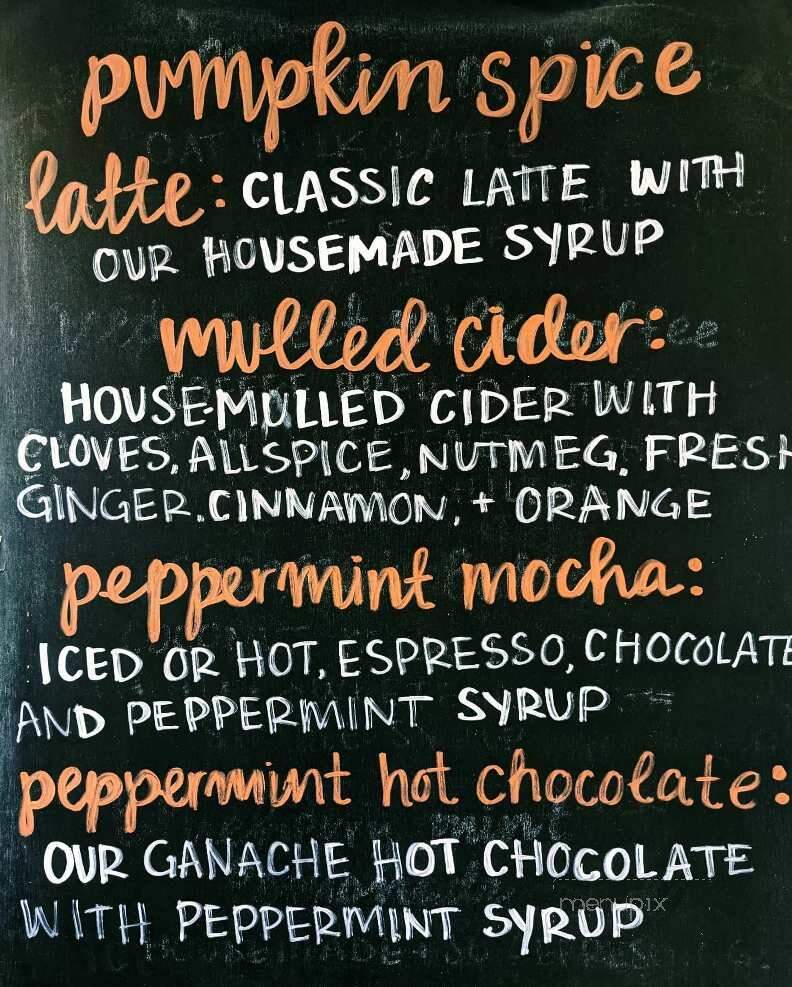 pumpkin spice
latte: CLASSIC LATTE WITH
OUR HOUSEMADE SYRUP
mulled cider:
HOUSE-MULLED CIDER WITH
CLOVES, ALLSPICE, NUTMEG, FRESH
GINGER, CINNAMON, + ORANGE
peppermint mocha:
ICED OR HOT, ESPRESSO, CHOCOLATE
AND PEPPERMINT SYRUP
peppermint hot chocolate:
OUR GANACHE HOT CHOCOLATE
menupix
WITH PEPPERMINT SYRUP